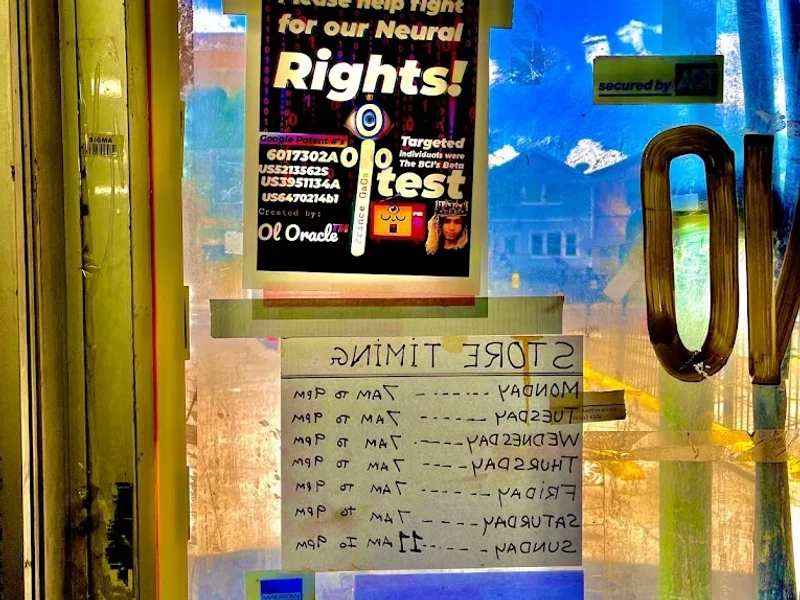 Please help fight
for our Neural
Rights!
Google Patent #'s
6017302A
US5213562S
US3951134A
US6470214b1
Created by:
Ol Oracle™
Prince GaGa
Targeted
individuals were
The BCI's Beta
test
SIGMA
secured by ADT
STORE TIMING
MONDAY ------ 7 AM TO 9PM
TUESDAY ----- 7 AM TO 9PM
WEDNESDAY ----- 7 AM TO 9PM
THURSDAY ----- 7 AM TO 9PM
FRIDAY ----- 7 AM TO 9PM
SATURDAY ----- 7 AM to 9PM
SUNDAY ----- 11 AM To 9PM